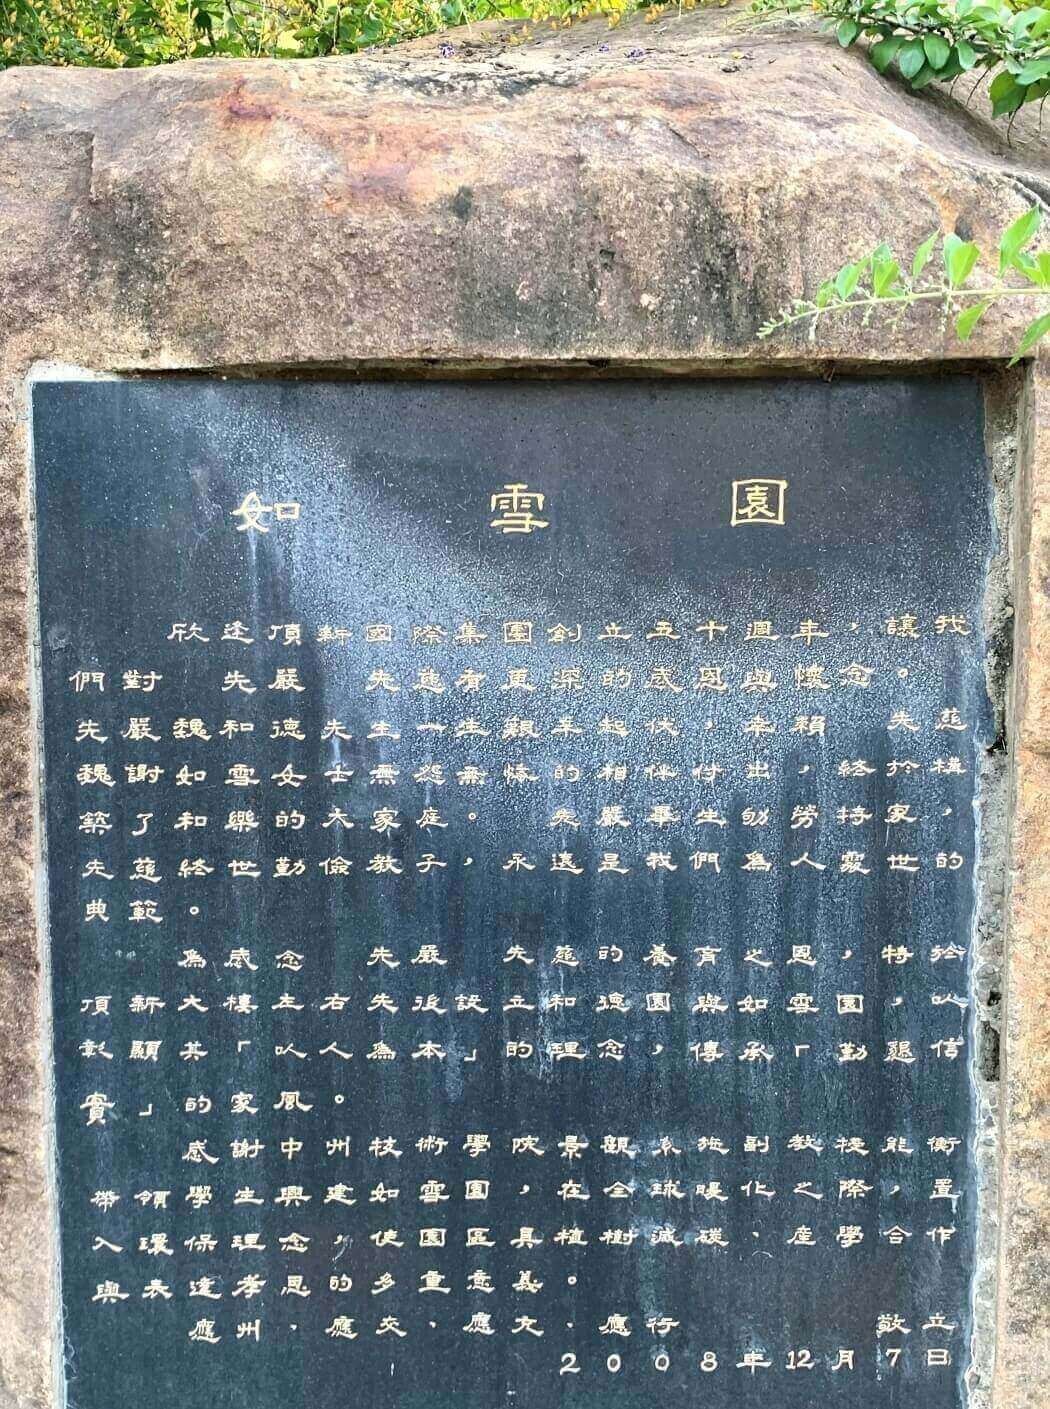 如雪園
欣逢頂新國際集團創立五十週年，讓我
們對 先嚴 先慈有更深的感恩與懷念。
先嚴魏和德先生一生艱辛起伏，幸賴先慈
魏謝如雪女士無怨無悔的相伴付出，終於構
築了和樂的大家庭。先嚴畢生劬勞持家，
先慈終世勤儉教子，永遠是我們為人處世的
典範。
為感念 先嚴 先慈的養育之恩，特於
頂新大樓左右先後設立和德園與如雪園，以
彰顯其「以人為本」的理念，傳承「勤懇信
實」的家風。
感謝中州技術學院景觀系施副教授能衡
帶領學生興建如雪園，在全球暖化之際，置
入環保理念，使園區具植樹減碳、產學合作
與表達孝思的多重意義。
應州、應交、應充、應行 敬立
2008年12月7日